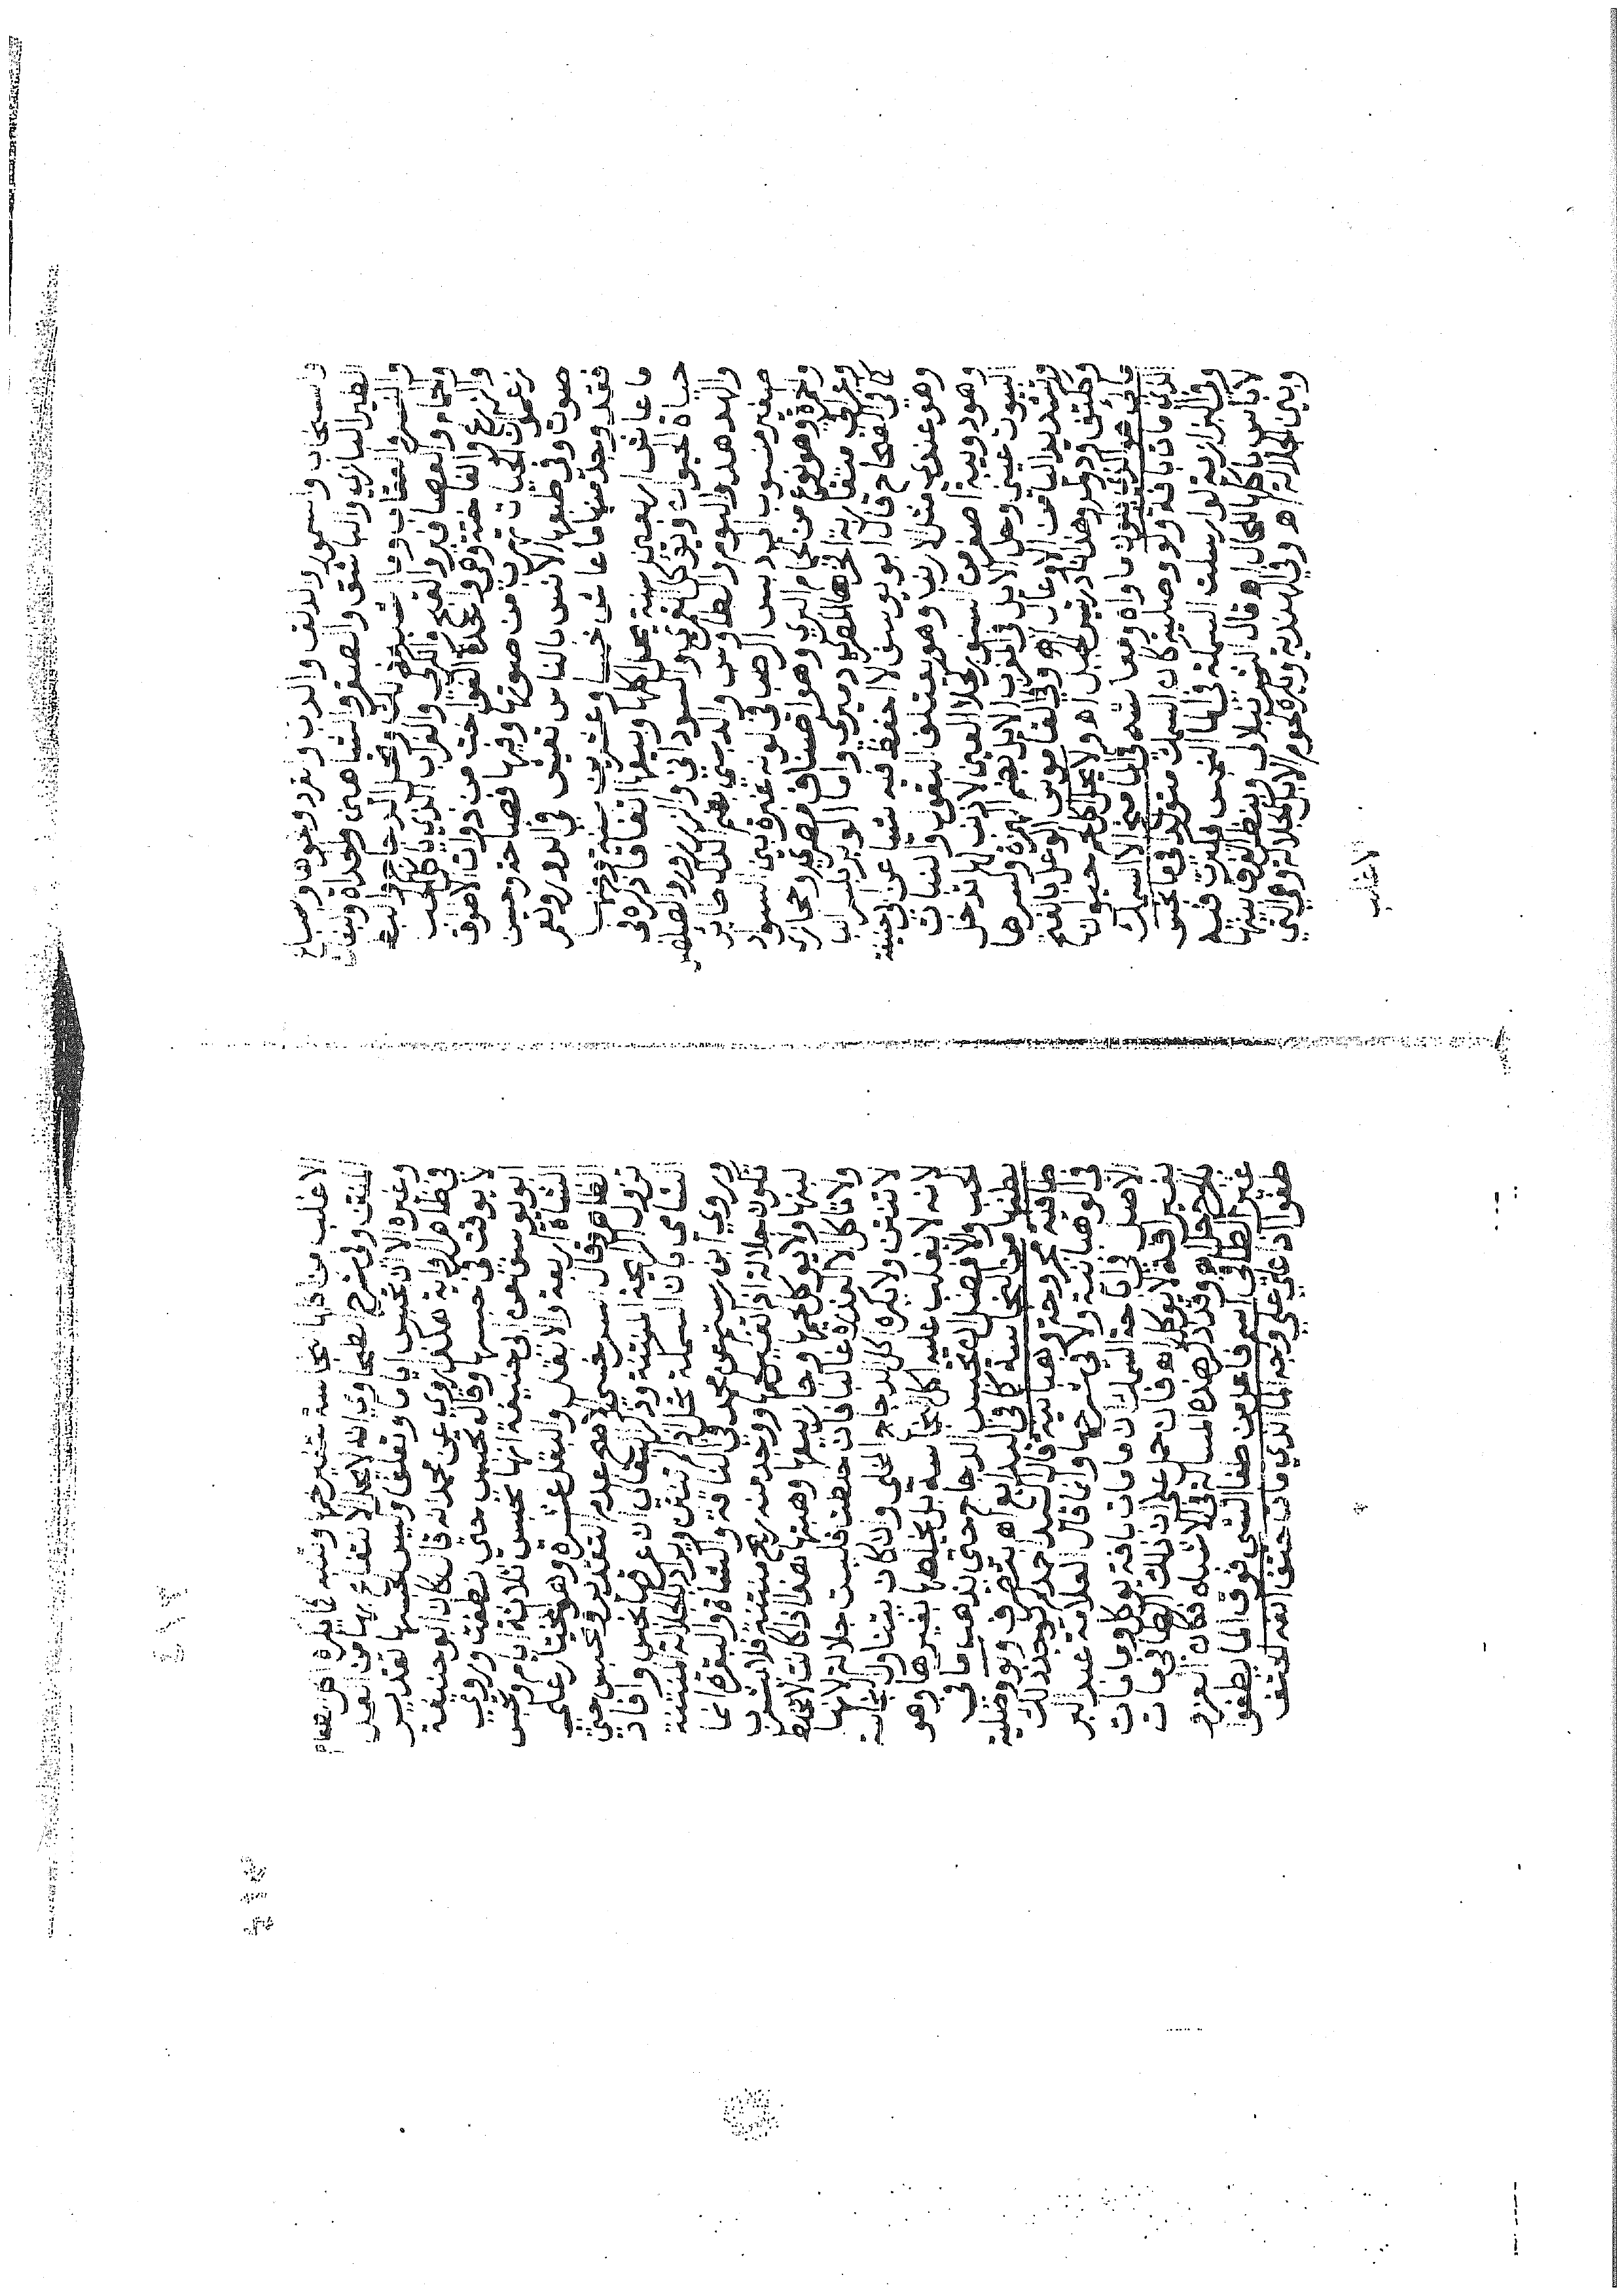 والسنجاب والسمور والدلف والدب والقرد ونحوها وسباع
الطير البازي والباشق والصقر والشاهين والحداة
والنسر والعقاب وما اشبه ذلك ونحل الدجاج والبط
والحمام والعصافير والقبج والكركي والغراب الذي ياكل الحب
والزرع والفاختة وهي واحدة الفواخت من ذوات الاطواق
زعموا ان الحيات تهرب من صوتها وفيها فصاحة وحسن
صوت وفي طبعها الانس بالناس تعيش في الدور ويعمر
فقد وجد منها ما عاش خمسا وعشرين سنة ومنها
ما عاش اربعين سنة يحل اكلها وبيعها اتفاقا ذكره في
حياة الحيوان ويؤكل القمري والسوداني والزرزور والصلصل
والهدهد والبوم والطاوس والدبسي بضم الدال طاير
صغير منسوب الى دبس الرطب في لونه غبرة بين السواد
والحمرة وهو نوع من الحمام البري وهو اصناف مصري وحجازي
وعراقي متقاربة افخرها المصري دميري واما الوبر بلسراب
كما في الصحاح قال ابو يوسف لا احفظ فيه شيا عن ابي حنيفة
وهو عندي مثل الارنب وهو يعتلف البقول والنبات
وهو دويبة اصغر من السنور كحلا العين لا ذنب لها تدخل
البيوت غيني وحل الايل في العرب الايل بضم الهمزة وكسرها
وتشديد اليا من الاوعال اه وفي القاموس الوعل بالفتح
وككتف ودئل وهذا نادر تيس الجبل اه ولا يحل اكل حيوان
مائي هو الذي يكون ماواه ومعاشه في الما منح الا السمك
الذي مات بافة ولو وصلية كان السمك متولدا في ما نجس
وفي البزازية لو ارسلت السمكة في الما النجس فكبرت فيه
لا باس باكلها للحال اه قال الشرنبلالي وينظر الفرق بينها
وبين الجلالة اه وفي الهندية ويكره لحوم الابل الجلالة وهي التي
الاغلب
الاغلب من اكلها نجاسة فتتغير لحمها وتنتن فيكره اكله كطعام
المنتن وفي شرح الطحاوي انه لا يحل الانتفاع بها من العمل
وغيره الا ان تحبس اياما وتعلف وليس لحبسها تقدير
في ظاهر الرواية هكذا روي عن محمد انه قال كان ابو حنيفة
لا يوقت في حبسها وقال تحبس حتى تطيب وروى
ابو يوسف عن ابي حنيفة انها تحبس ثلاثة ايام وتحبس
الشاة اربعة والابل والبقر عشرة وهو المختار على
الظاهر وقال السرخسي الاصح عدم التقدير وتحبس حتى
تزول الرايحة المنتنة وذكر القاني ان عرقها نجس وافاد
الشامي بان السمكة تحل اذا لم تنتن ويراد بالجلالة المنتنة
وروي ابن رستم عن محمد في الناقة والشاة والبقرة انما
تكون جلالة اذا تغير لحمها ووجد منه ريح منتنة فلا يشرب
لبنها ولا يؤكل لحمها وجاز بيعها وهبتها هذا اذا كانت لا تخلط
ولا تاكل الا العذرة غالبا فان خلطت فليست جلالة لانها
لا تنتن ولا يكره اكل الدجاج المخلى وان كان يتناول النجاسة
لانه لا يغلب عليه اكل النجاسة بل يخلطها بغيرها وهو
الحب والافضل ان تحبس الدجاج حتى يذهب ما في
بطنها من النجاسة كما في البدايع اه بتصرف ولو وصلية
طافية مجروحة وهبانية قال السيد احمد لم يوجد ذلك
في الوهبانية ولا في شرحها وانما قال العلامة عبد البر
الاصل في اباحة السمك ان ما مات بافة يؤكل وما مات
بغير افة لا يؤكل اه فان حمل على ان ذلك الطافي مات
بالجرح حل اه وقد ذكر هذه المسالة في الاشباه فكان العزو
غير الطافي اسم فاعل من طفا الشي فوق الما يطفو
طفوا اذا علي على وجه الما الذي مات حتف انفه الحتف